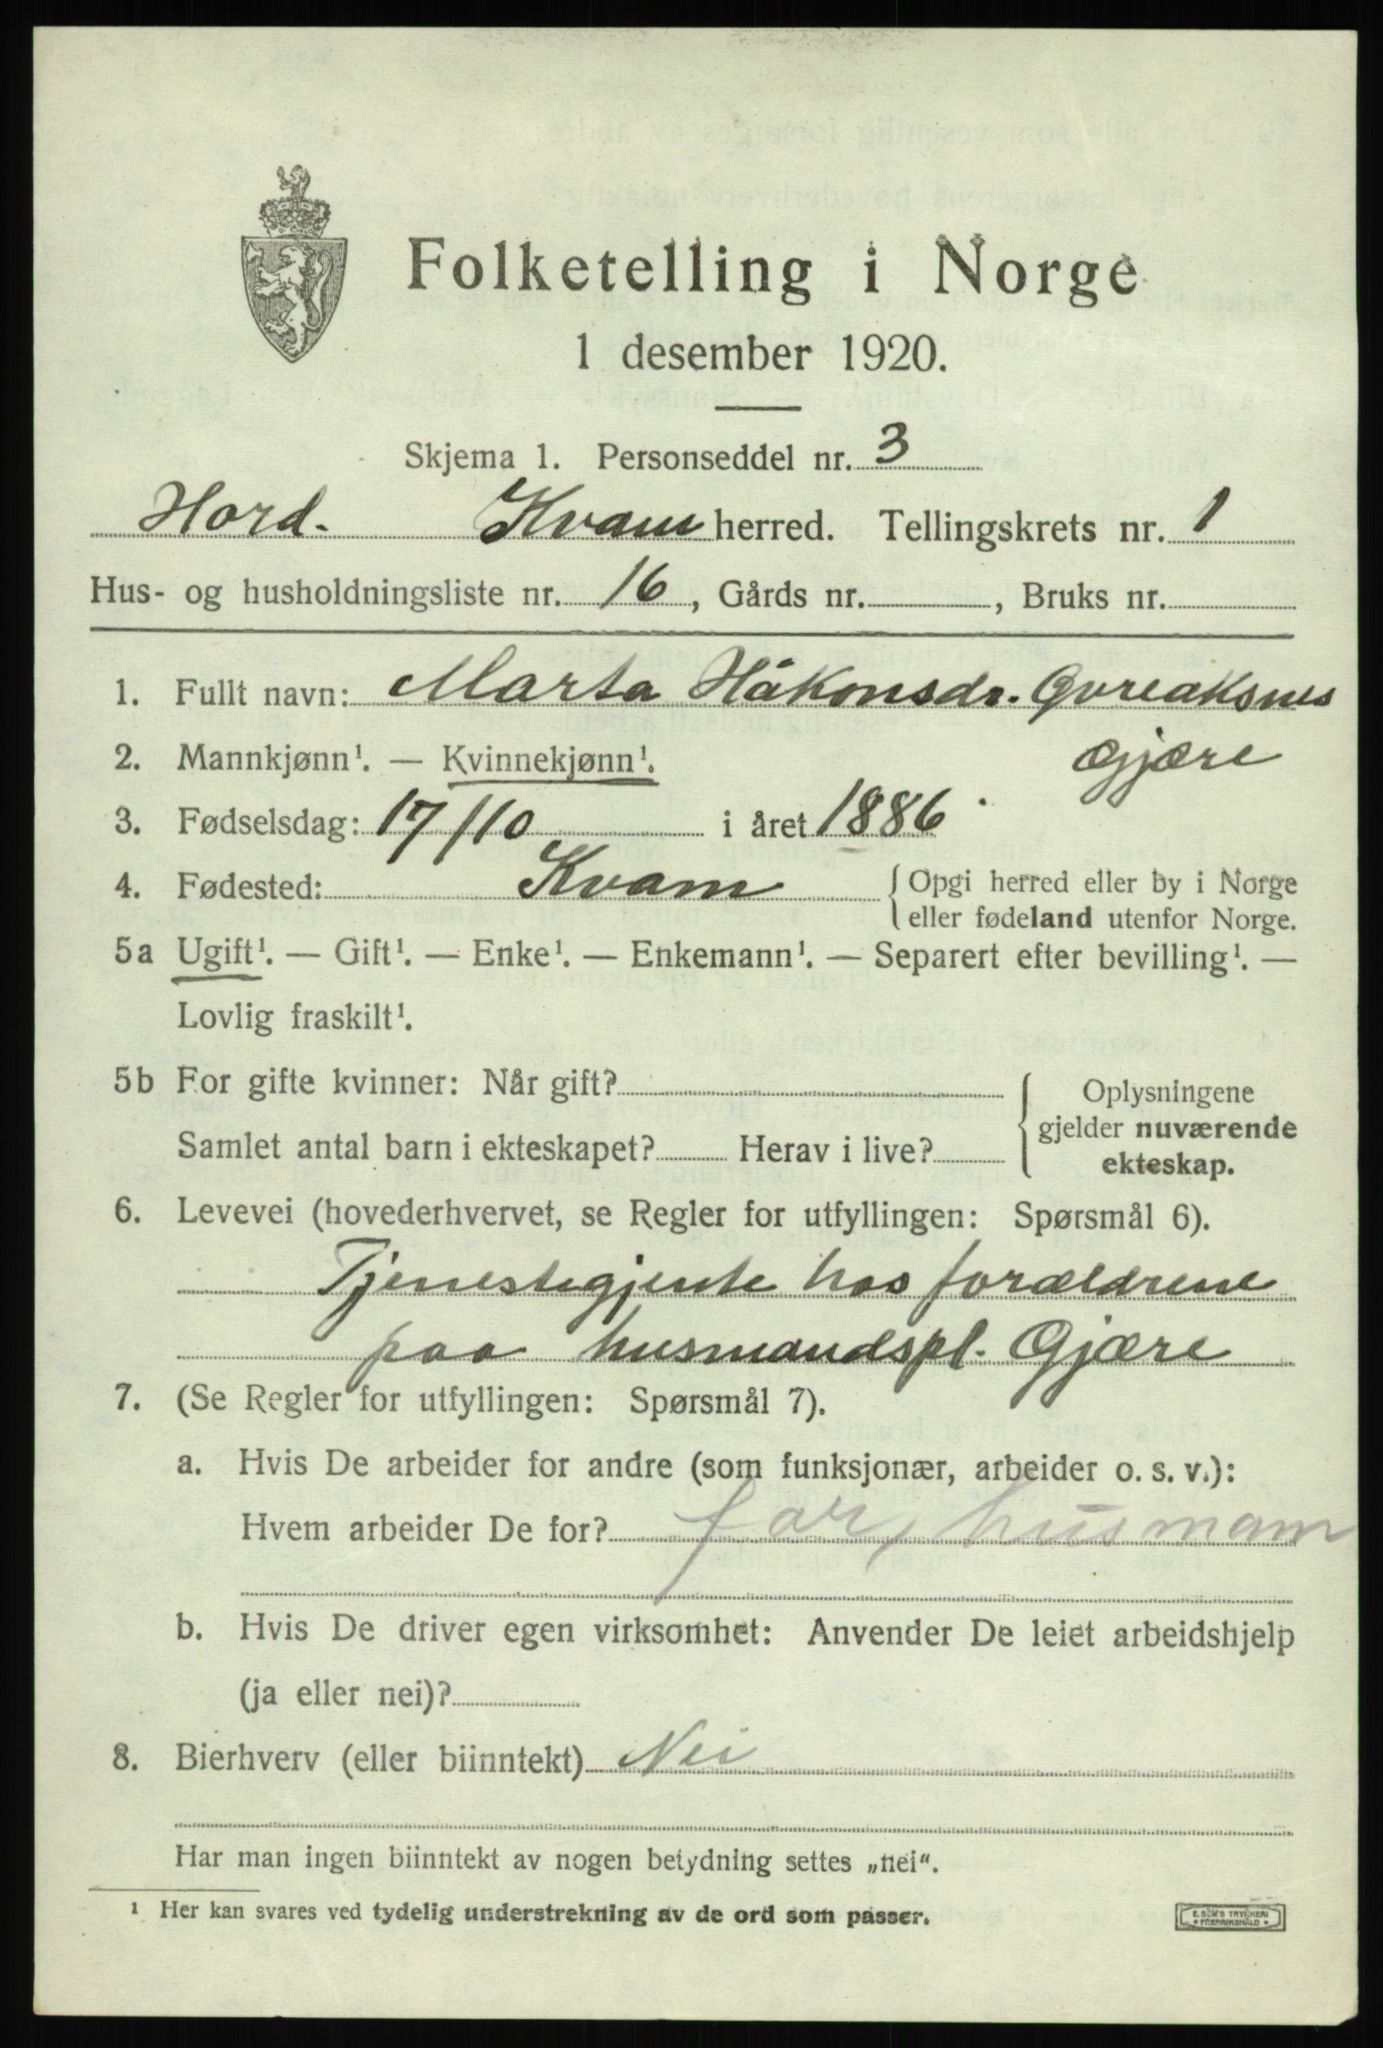 Folketelling i Norge
1 desember 1920.
Skjema 1. Personseddel nr. 3
Hord. Kvam herred. Tellingskrets nr. 1
Hus- og husholdningsliste nr. 16, Gårds nr. , Bruks nr.
1. Fullt navn: Marta Håkonsdr. Qvreaksnes
Gjære
2. Mannkjønn¹. — Kvinnekjønn¹.
3. Fødselsdag: 17/10 i året 1886
4. Fødested: Kvam { Opgi herred eller by i Norge
eller fødeland utenfor Norge.
5a Ugift¹. — Gift¹. — Enke¹. — Enkemann¹. — Separert efter bevilling¹. —
Lovlig fraskilt¹.
5b For gifte kvinner: Når gift? { Oplysningene
gjelder nuværende
Samlet antal barn i ekteskapet? Herav i live?
ekteskap.
6. Levevei (hovederhvervet, se Regler for utfyllingen: Spørsmål 6).
Tjenestegjente hos forældrene
paa husmandspl. Gjære
7. (Se Regler for utfyllingen: Spørsmål 7).
a. Hvis De arbeider for andre (som funksjonær, arbeider o. s. v.):
Hvem arbeider De for? far, husmam
b. Hvis De driver egen virksomhet: Anvender De leiet arbeidshjelp
(ja eller nei)?
8. Bierhverv (eller biinntekt) Nei
Har man ingen biinntekt av nogen betydning settes „nei“.
¹ Her kan svares ved tydelig understrekning av de ord som passer.
E. SEM'S TRYKKERI
* FREDRIKSHALD *